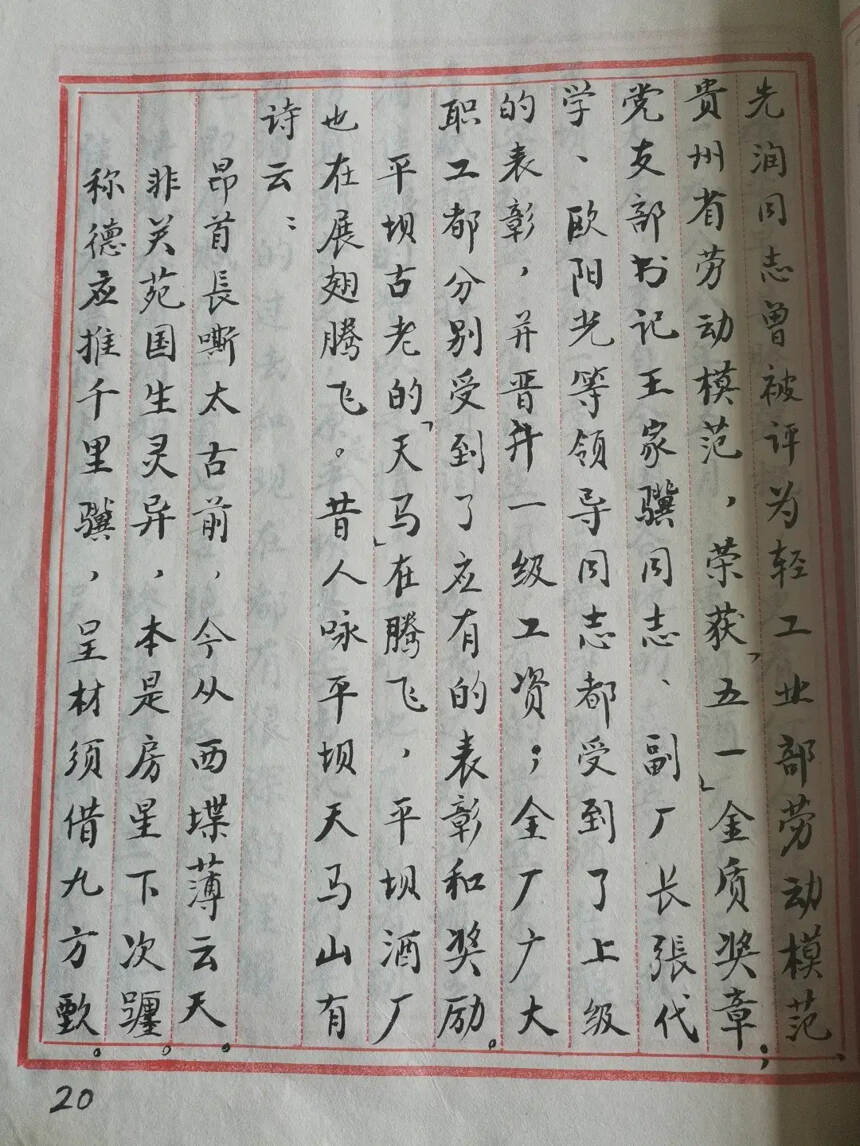 先润同志曾被评为轻工业部劳动模范、
贵州省劳动模范，荣获「五一」金质奖章；
党支部书记王家骥同志、副厂长張代
学、欧阳光等领导同志都受到了上级
的表彰，并晋升一级工资；全厂广大
职工都分别受到了应有的表彰和奖励。
平坝古老的「天马」在腾飞，平坝酒厂
也在展翅腾飞。昔人咏平坝天马山有
诗云：
昂首長嘶太古前，今从西堞薄云天。
非关苑国生灵异，本是房星下次躔。
称德应推千里骥，呈材须借九方甄。
20